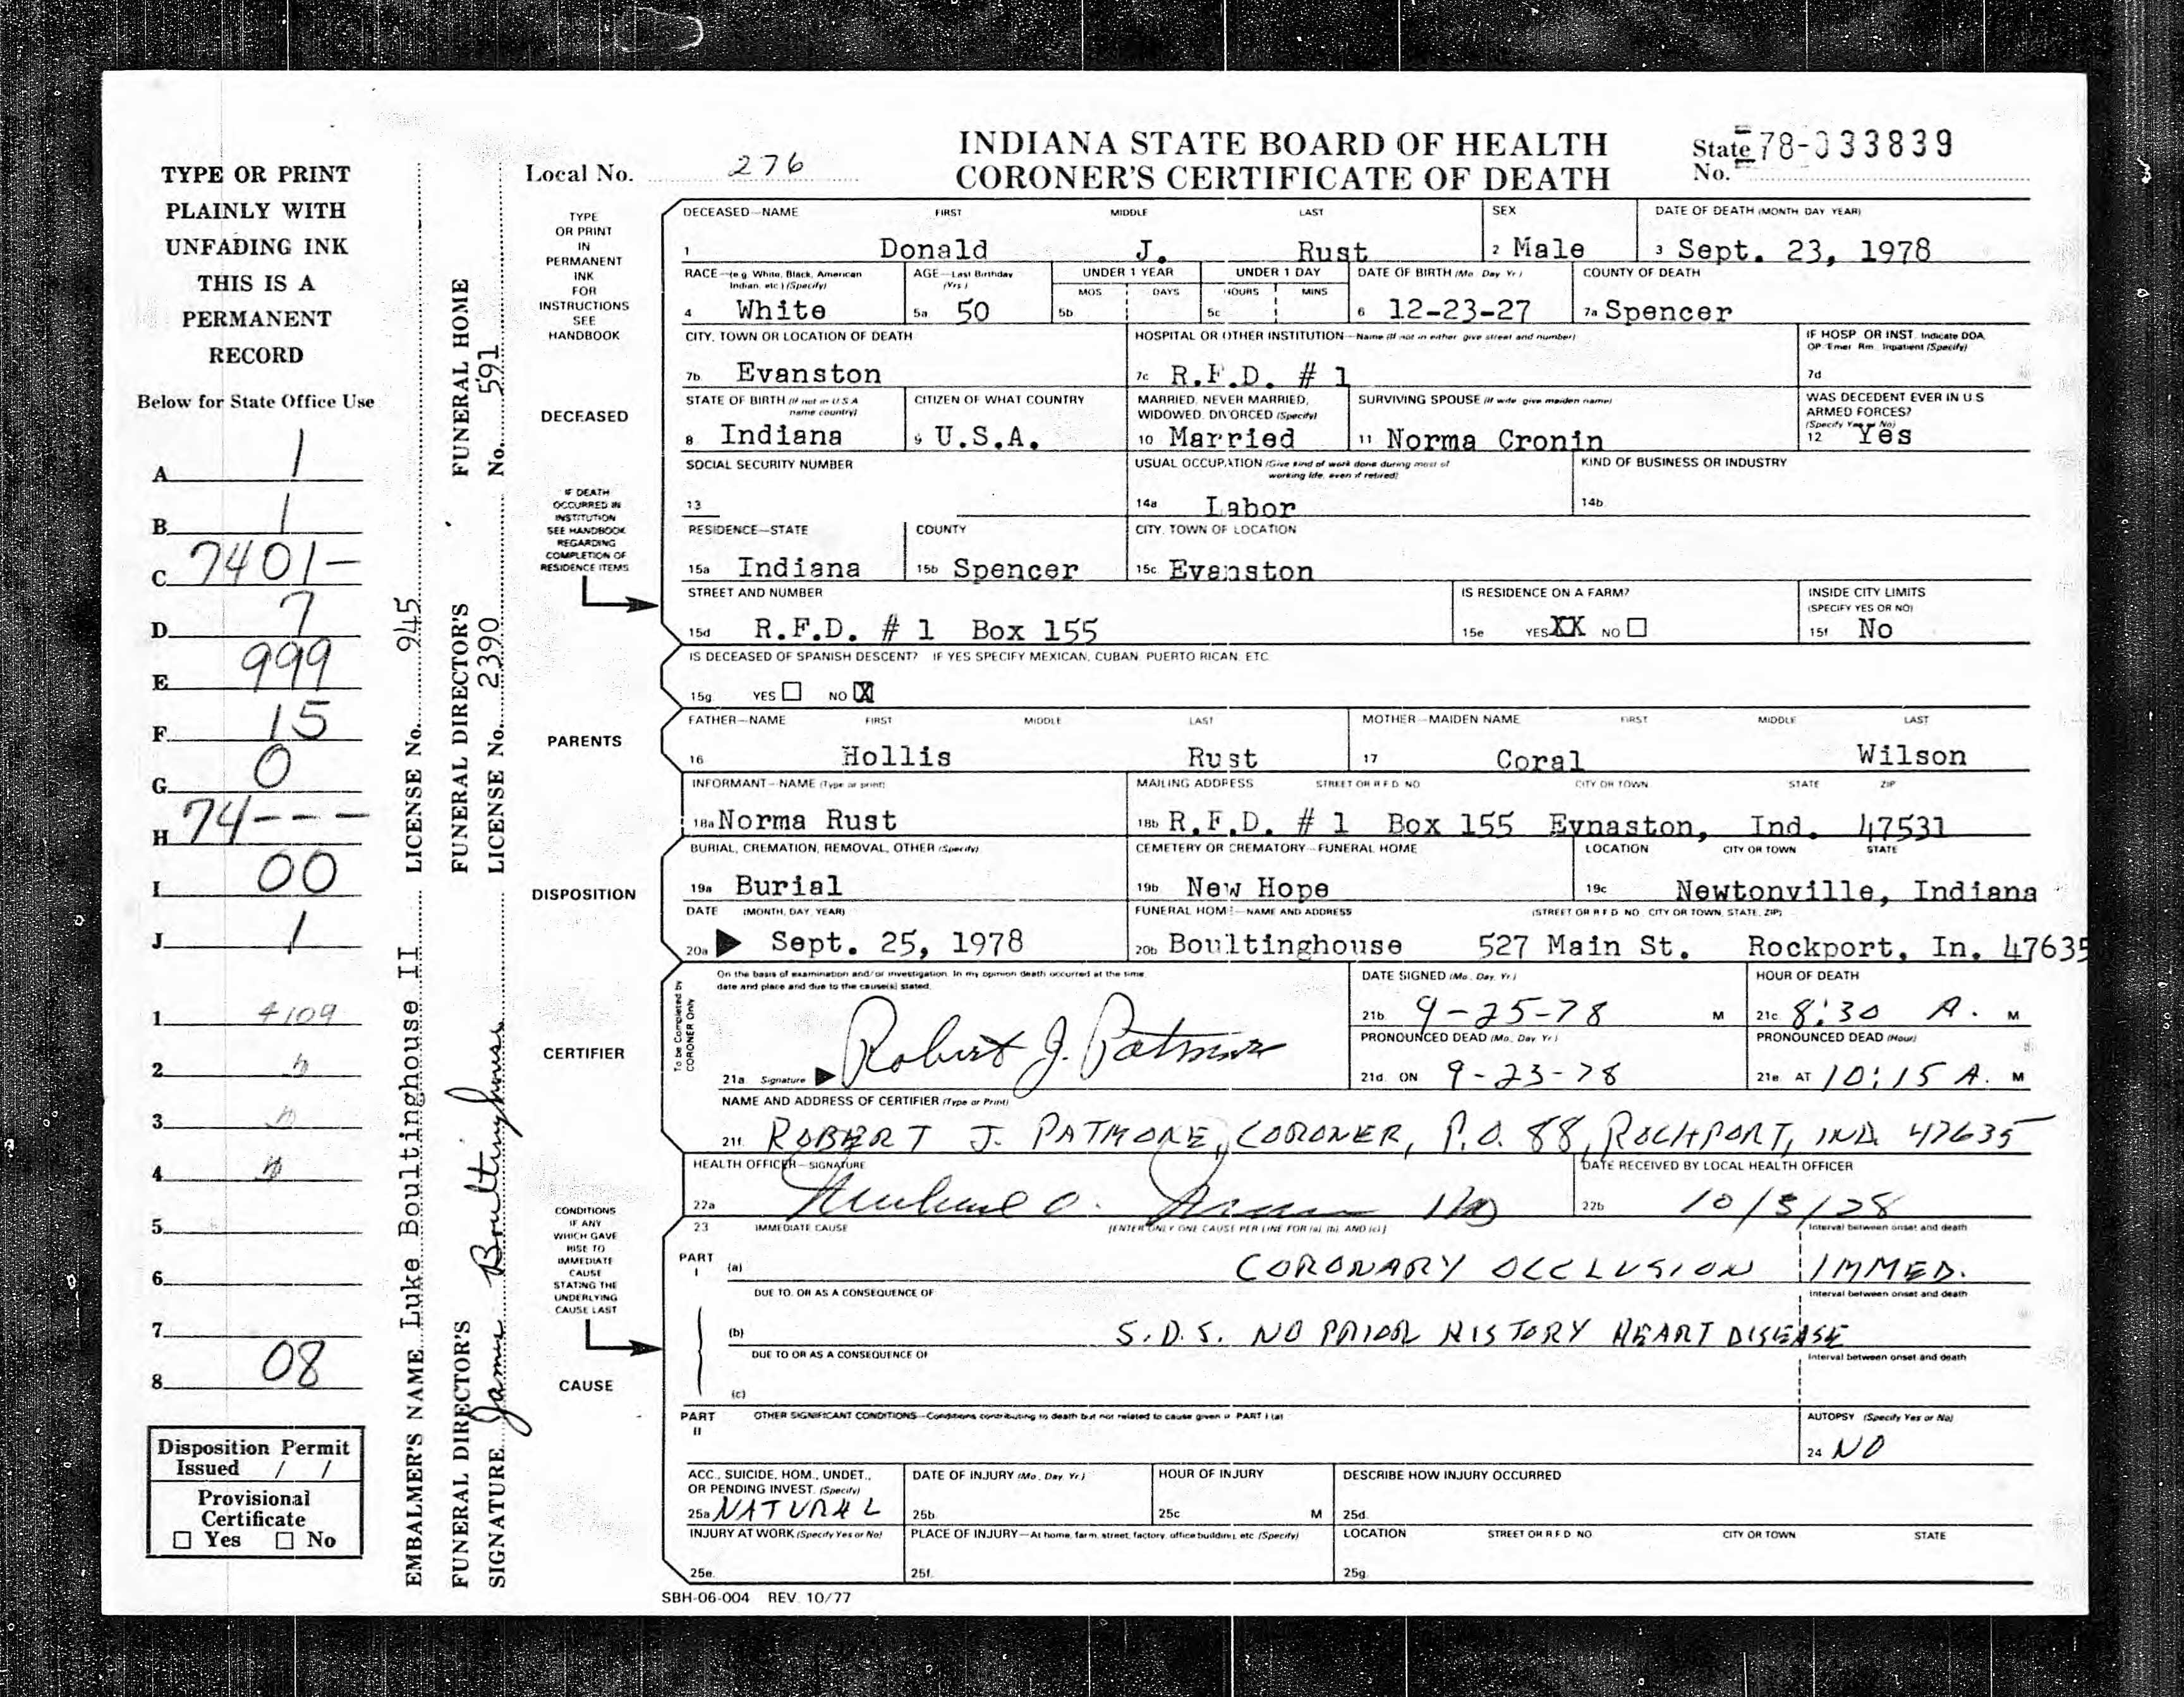 INDIANA STATE BOARD OF HEALTH
CORONER'S CERTIFICATE OF DEATH
Local No. 276
State No. 78-033839
TYPE OR PRINT
PLAINLY WITH
UNFADING INK
THIS IS A
PERMANENT
RECORD
Below for State Office Use
A 1
B 1
C 7401-
D 7
E 999
F 15
G 0
H 74---
I 00
J 1
1 4109
2
3
4
5
6
7
8 08
Disposition Permit
Issued / /
Provisional
Certificate
☐ Yes ☐ No
EMBALMER'S NAME Luke Boultinghouse II LICENSE No. 945
FUNERAL DIRECTOR'S SIGNATURE James Boultinghouse
FUNERAL DIRECTOR'S LICENSE No. 2390
FUNERAL HOME No. 591
TYPE
OR PRINT
IN
PERMANENT
INK
FOR
INSTRUCTIONS
SEE
HANDBOOK
DECEASED
IF DEATH
OCCURRED IN
INSTITUTION
SEE HANDBOOK
REGARDING
COMPLETION OF
RESIDENCE ITEMS
PARENTS
DISPOSITION
CERTIFIER
CONDITIONS
IF ANY
WHICH GAVE
RISE TO
IMMEDIATE
CAUSE
STATING THE
UNDERLYING
CAUSE LAST
CAUSE
DECEASED—NAME FIRST MIDDLE LAST SEX DATE OF DEATH (MONTH DAY YEAR)
1 Donald J. Rust 2 Male 3 Sept. 23, 1978
RACE—(e.g. White, Black, American Indian, etc.) (Specify) AGE—Last Birthday (Yrs.) UNDER 1 YEAR UNDER 1 DAY DATE OF BIRTH (Mo. Day Yr.) COUNTY OF DEATH
MOS DAYS HOURS MINS
4 White 5a 50 5b 5c 6 12-23-27 7a Spencer
CITY, TOWN OR LOCATION OF DEATH HOSPITAL OR OTHER INSTITUTION—Name (If not in either give street and number) IF HOSP OR INST. Indicate DOA OP Emer Rm. Inpatient (Specify)
7b Evanston 7c R.F.D. # 1 7d
STATE OF BIRTH (If not in U.S.A name country) CITIZEN OF WHAT COUNTRY MARRIED, NEVER MARRIED, WIDOWED, DIVORCED (Specify) SURVIVING SPOUSE (If wife give maiden name) WAS DECEDENT EVER IN U.S ARMED FORCES? (Specify Yes or No)
8 Indiana 9 U.S.A. 10 Married 11 Norma Cronin 12 Yes
SOCIAL SECURITY NUMBER USUAL OCCUPATION (Give kind of work done during most of working life, even if retired) KIND OF BUSINESS OR INDUSTRY
13 14a Labor 14b
RESIDENCE—STATE COUNTY CITY, TOWN OF LOCATION
15a Indiana 15b Spencer 15c Evanston
STREET AND NUMBER IS RESIDENCE ON A FARM? INSIDE CITY LIMITS (SPECIFY YES OR NO)
15d R.F.D. # 1 Box 155 15e YES XX NO ☐ 15f No
IS DECEASED OF SPANISH DESCENT? IF YES SPECIFY MEXICAN, CUBAN, PUERTO RICAN, ETC.
15g YES ☐ NO X
FATHER—NAME FIRST MIDDLE LAST MOTHER—MAIDEN NAME FIRST MIDDLE LAST
16 Hollis Rust 17 Coral Wilson
INFORMANT—NAME (Type or print) MAILING ADDRESS STREET OR R F D NO CITY OR TOWN STATE ZIP
18a Norma Rust 18b R.F.D. # 1 Box 155 Evnaston, Ind. 47531
BURIAL, CREMATION, REMOVAL, OTHER (Specify) CEMETERY OR CREMATORY—FUNERAL HOME LOCATION CITY OR TOWN STATE
19a Burial 19b New Hope 19c Newtonville, Indiana
DATE (MONTH, DAY, YEAR) FUNERAL HOME—NAME AND ADDRESS (STREET OR R F D NO CITY OR TOWN, STATE, ZIP)
20a Sept. 25, 1978 20b Boultinghouse 527 Main St. Rockport, In. 47635
To be Completed by CORONER Only
On the basis of examination and/or investigation, in my opinion death occurred at the time, date and place and due to the cause(s) stated.
21a Signature Robert J. Patmore
DATE SIGNED (Mo. Day, Yr.) HOUR OF DEATH
21b 9-25-78 M 21c 8:30 A. M
PRONOUNCED DEAD (Mo., Day Yr.) PRONOUNCED DEAD (Hour)
21d ON 9-23-78 21e AT 10:15 A. M
NAME AND ADDRESS OF CERTIFIER (Type or Print)
21f. ROBERT J. PATMORE, CORONER, P.O. 88, ROCKPORT, IND. 47635
HEALTH OFFICER—SIGNATURE DATE RECEIVED BY LOCAL HEALTH OFFICER
22a 22b 10/3/78
23 IMMEDIATE CAUSE [ENTER ONLY ONE CAUSE PER LINE FOR (a), (b), AND (c)] Interval between onset and death
PART I (a) CORONARY OCCLUSION IMMED.
DUE TO, OR AS A CONSEQUENCE OF Interval between onset and death
(b) S.D.S. NO PRIOR HISTORY HEART DISEASE
DUE TO OR AS A CONSEQUENCE OF Interval between onset and death
(c)
PART II OTHER SIGNIFICANT CONDITIONS—Conditions contributing to death but not related to cause given in PART I (a) AUTOPSY (Specify Yes or No)
24 NO
ACC., SUICIDE, HOM., UNDET., OR PENDING INVEST. (Specify) DATE OF INJURY (Mo., Day, Yr.) HOUR OF INJURY DESCRIBE HOW INJURY OCCURRED
25a NATURAL 25b 25c M 25d
INJURY AT WORK (Specify Yes or No) PLACE OF INJURY—At home, farm, street, factory, office building, etc (Specify) LOCATION STREET OR R F D NO CITY OR TOWN STATE
25e. 25f. 25g
SBH-06-004 REV. 10/77